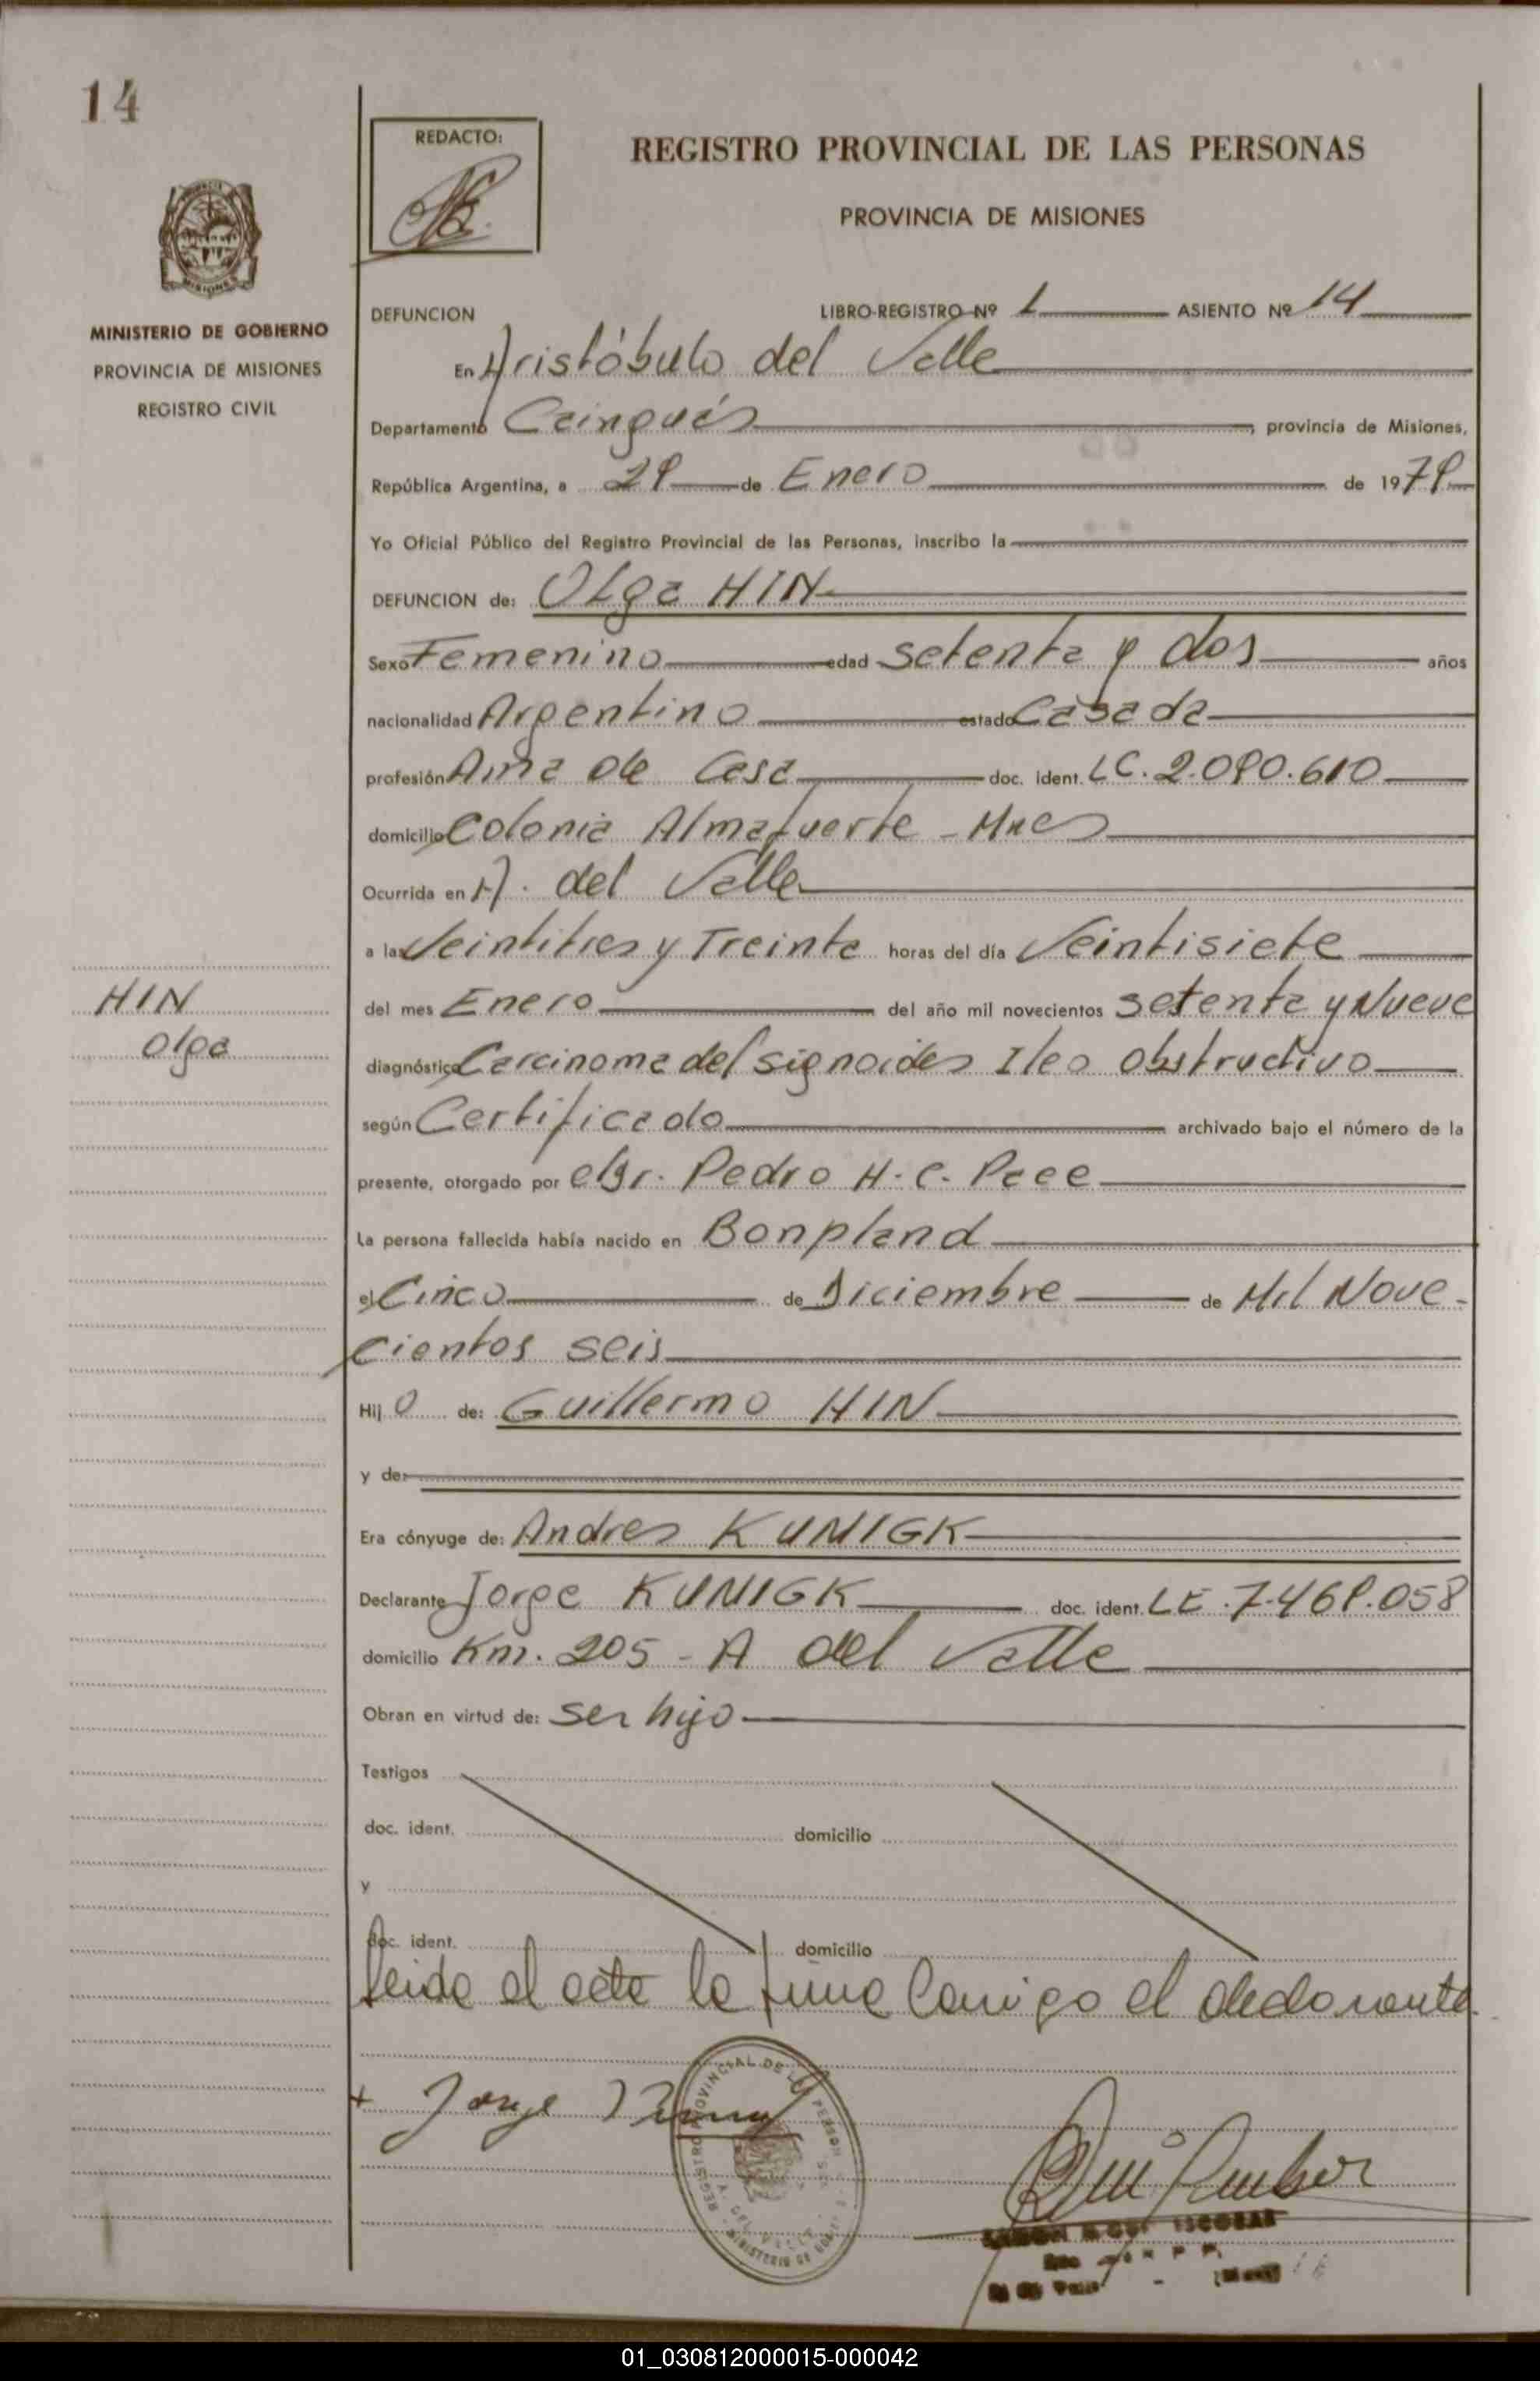 14
REDACTO:
REGISTRO PROVINCIAL DE LAS PERSONAS
PROVINCIA DE MISIONES
MINISTERIO DE GOBIERNO
PROVINCIA DE MISIONES
REGISTRO CIVIL
DEFUNCION LIBRO-REGISTRO Nº 1 ASIENTO Nº 14
En Aristóbulo del Valle
Departamento Caingués, provincia de Misiones,
República Argentina, a 29 de Enero de 1979
Yo Oficial Público del Registro Provincial de las Personas, inscribo la
DEFUNCION de: Olga HIN
Sexo Femenino edad setenta y dos años
nacionalidad Argentino estado Casada
profesión Ama de Casa doc. ident. LC. 2.090.610
domicilio Colonia Almafuerte - Mnes
Ocurrida en A. del Valle
a las Veintitres y Treinta horas del día Veintisiete
HIN
del mes Enero del año mil novecientos setenta y Nueve
Olga
diagnóstico Carcinoma del signoides Ileo Obstructivo
según Certificado archivado bajo el número de la
presente, otorgado por el Dr. Pedro H. C.
La persona fallecida había nacido en Bonpland
el Cinco de Diciembre de Mil Nove-
cientos seis
Hij o de: Guillermo HIN
y de:
Era cónyuge de: Andres KUNIGK
Declarante Jorge KUNIGK doc. ident. LE. 7.469.058
domicilio Km. 205 - A del Valle
Obran en virtud de: ser hijo
Testigos
doc. ident. domicilio
y
doc. ident. domicilio
Leida el acta la firma Conmigo el declarante
Jorge
REGISTRO PROVINCIAL DE LAS PERSONAS
A. DEL VALLE
MINISTERIO DE
ESCOBAR
01_030812000015-000042